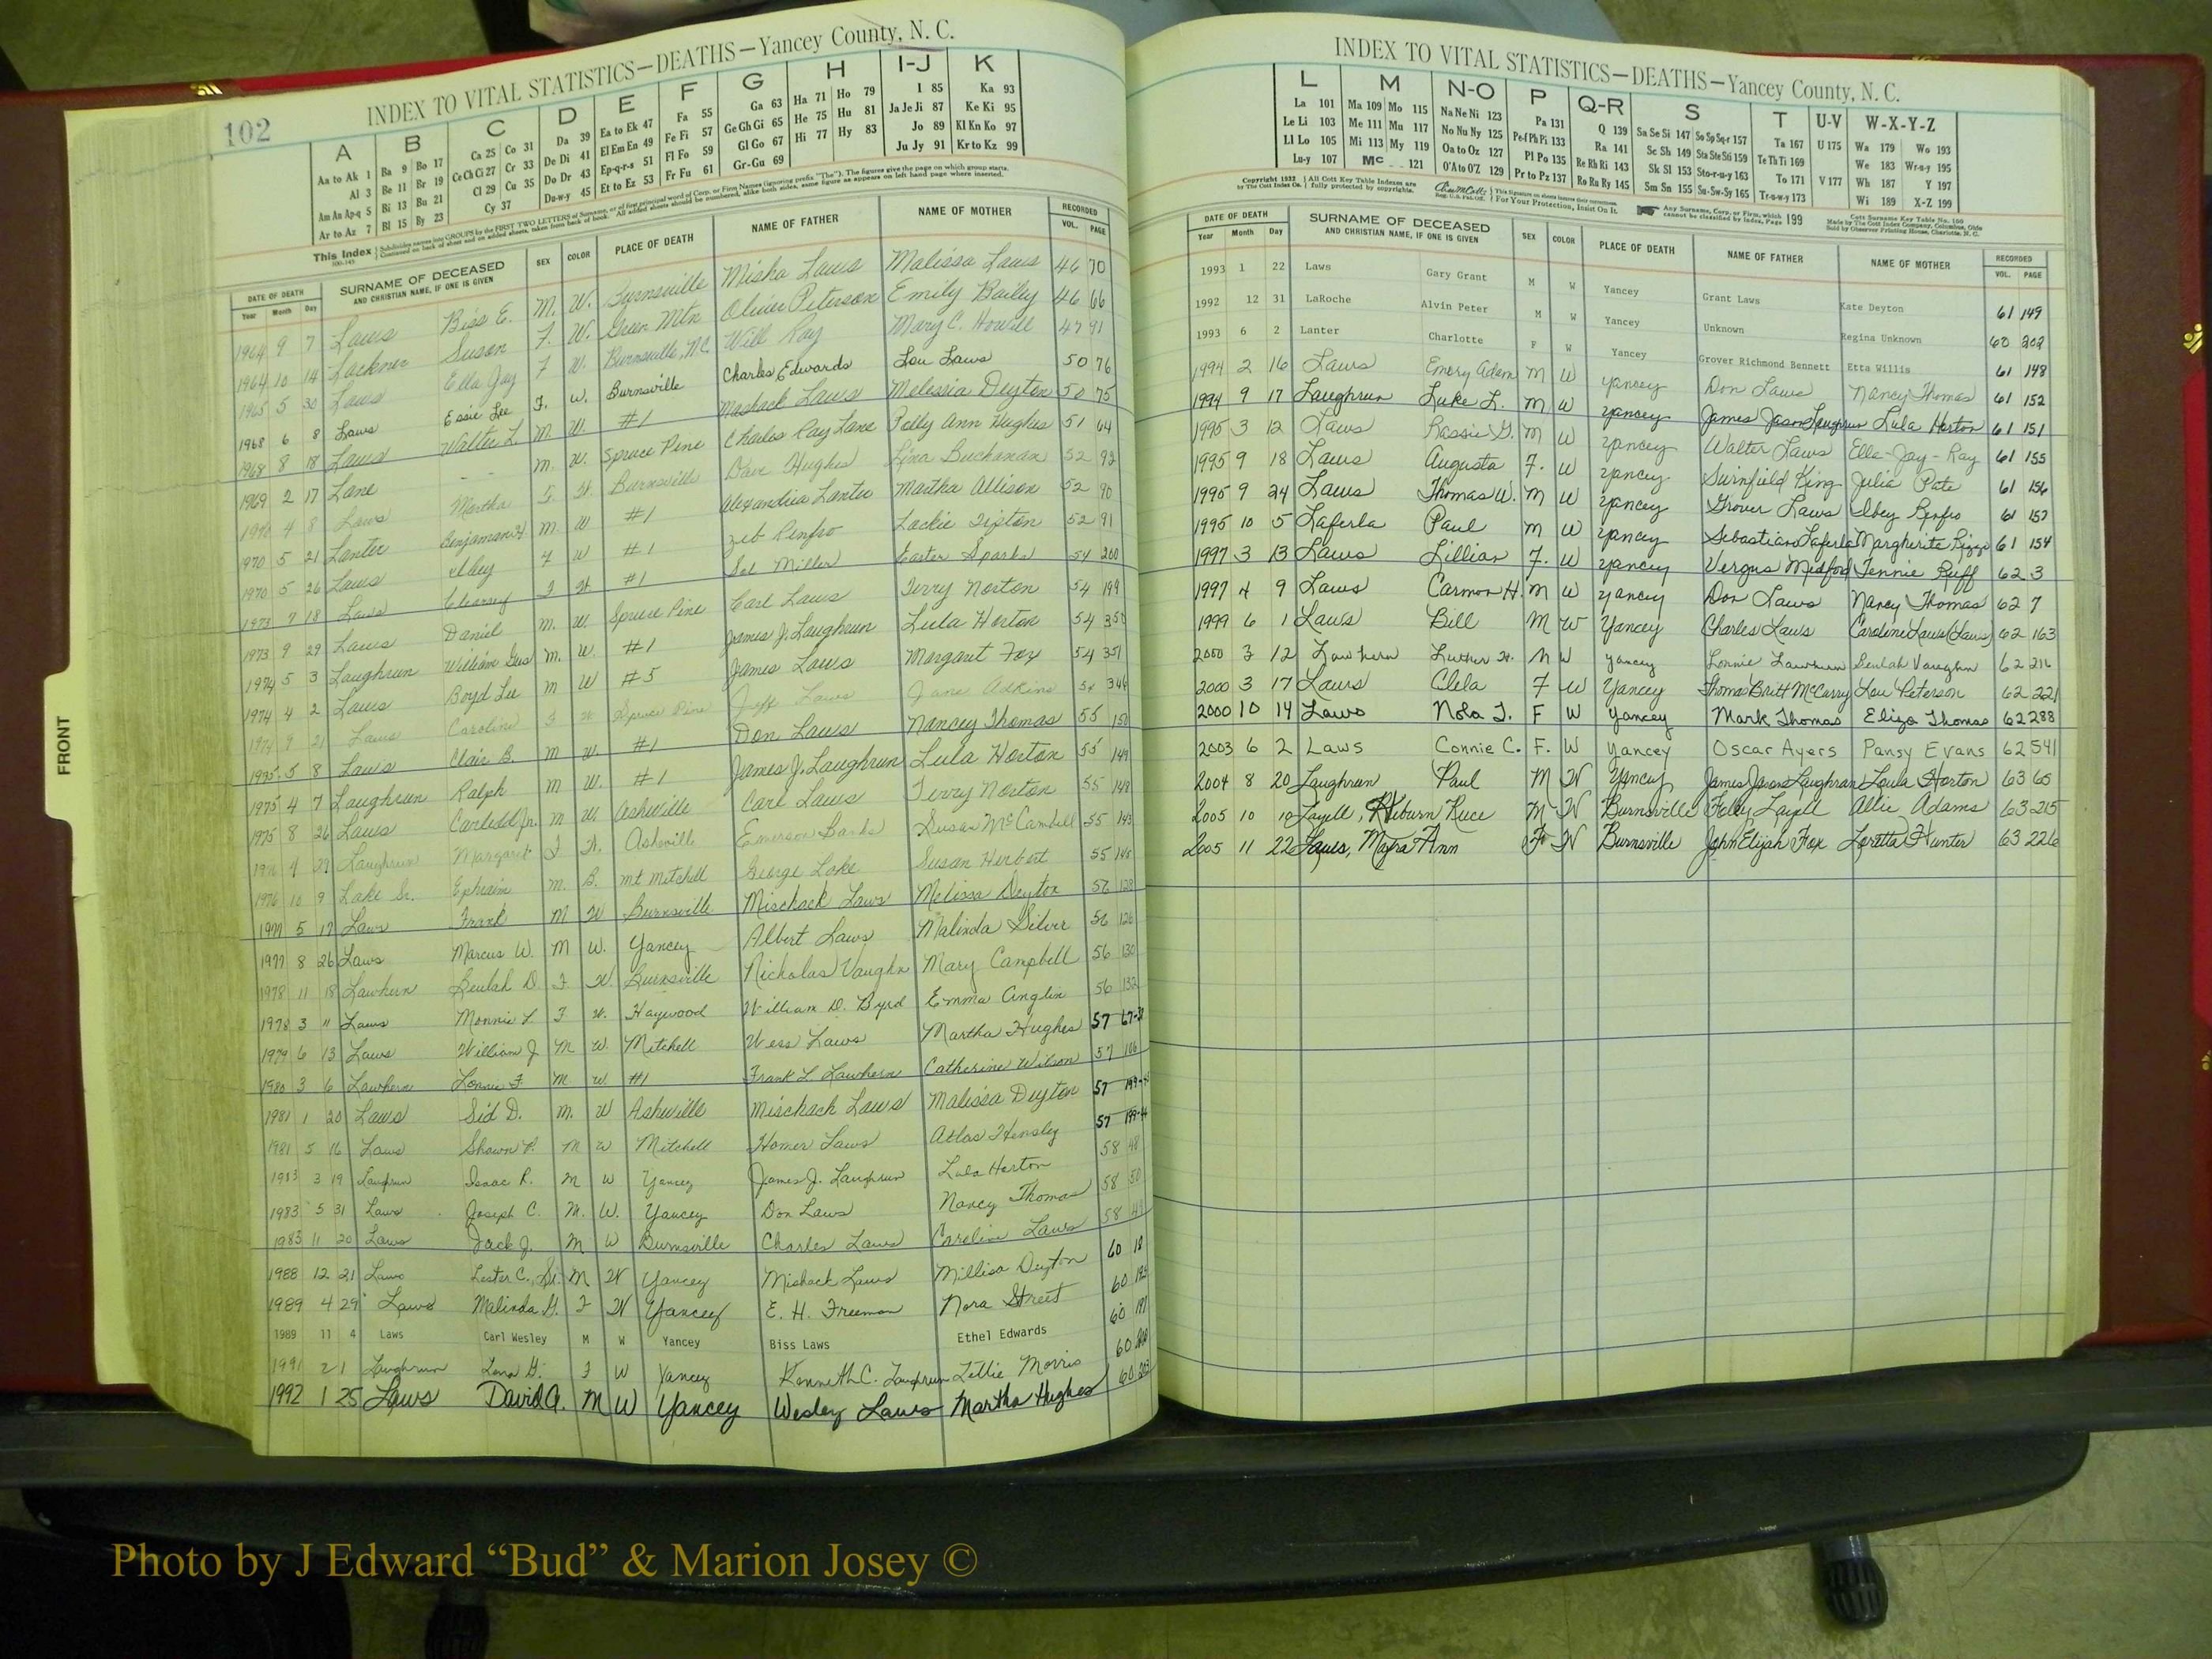 102
INDEX TO VITAL STATISTICS—DEATHS—Yancey County, N. C.
A B C D E F G H I-J K
Aa to Ak 1 Ba 9 Bo 17 Ca 25 Co 31 Da 39 Ea to Ek 47 Fa 55 Ga 63 Ha 71 Ho 79 I 85 Ka 93
Al 3 Be 11 Br 19 Ce Ch Ci 27 Cr 33 De Di 41 El Em En 49 Fe Fi 57 Ge Gh Gi 65 He 75 Hu 81 Ja Je Ji 87 Ke Ki 95
Am An Ap-q 5 Bi 13 Bu 21 Cl 29 Cu 35 Do Dr 43 Ep-q-r-s 51 Fl Fo 59 Gl Go 67 Hi 77 Hy 83 Jo 89 Kl Kn Ko 97
Ar to Az 7 Bl 15 By 23 Cy 37 Du-w-y 45 Et to Ez 53 Fr Fu 61 Gr-Gu 69 Ju Jy 91 Kr to Kz 99
This Index
DATE OF DEATH SURNAME OF DECEASED SEX COLOR PLACE OF DEATH NAME OF FATHER NAME OF MOTHER RECORDED
Year Month Day AND CHRISTIAN NAME, IF ONE IS GIVEN VOL. PAGE
1964 9 7 Laws Biss E. M. W. Burnsville Misha Laws Malissa Laws 46 70
1964 10 14 Lackner Susan F. W. Green Mtn Oliver Peterson Emily Bailey 46 66
1965 5 30 Laws Ella Jay F W. Burnsville, N.C. Will Ray Mary C. Howell 47 91
1968 6 8 Laws Essie Lee F. W. Burnsville Charles Edwards Lou Laws 50 76
1968 8 18 Laws Walter L. M. W. #1 Mashack Laws Melissia Deyton 50 75
1969 2 17 Lane - M. W. Spruce Pine Charles Ray Lane Polly Ann Hughes 51 64
1970 4 8 Laws Martha F. W. Burnsville Dave Hughes Lina Buchanan 52 92
1970 5 21 Lanter Benjaman H M. W #1 Alexandria Lanter Martha Allison 52 90
1970 5 26 Laws Ibbey F W #1 Zeb Renfro Lackie Tipton 52 91
1973 7 18 Laws F W #1 Sol Miller Easter Sparks 54 200
1973 9 29 Laws Daniel M. W. Spruce Pine Carl Laws Terry Norton 54 199
1974 5 3 Laughrun William Gus M. W. #1 James J. Laughrun Lula Horton 54 350
1974 4 2 Laws Boyd Lee M W #5 James Laws Margaret Fox 54 351
1974 9 21 Laws Caroline F W Spruce Pine Jeff Laws Jane Adkins 54 346
1975 5 8 Laws Clair B. M W. #1 Don Laws Nancy Thomas 55 150
1975 4 7 Laughrun Ralph M W. #1 James J. Laughrun Lula Horton 55 149
1975 8 26 Laws Carl M W. Asheville Carl Laws Terry Norton 55 148
4 29 Laughrun Margaret F W. Asheville Emerson Banks Susan McCambell 55 143
1976 10 9 Lake Sr. Ephraim M. B. Mt Mitchell George Lake Susan Herbert 55 145
1977 5 17 Laws Frank M W Burnsville Mischack Laws Melissa Deyton 56 128
1977 8 26 Laws Marcus W. M W. Yancey Albert Laws Malinda Silver 56 126
1978 11 18 Lawhern Beulah D. F W. Burnsville Nicholas Vaughn Mary Campbell 56 130
1978 3 " Laws Monnie L F W. Haywood William D. Byrd Emma Anglin 56 132
1979 6 13 Laws William J M W. Mitchell Wess Laws Martha Hughes 57 67-
1980 3 6 Lawhern Lonnie F. M W. #1 Frank L. Lawhern Catherine Wilson 57 106
1981 1 20 Laws Sid D. M. W Asheville Mischack Laws Malissa Deyton 57 199-
1981 5 16 Laws Shawn P. M W Mitchell Homer Laws Atlas Hensley 57 199-
1983 3 19 Laughrun Isaac R. M W Yancey James J. Laughrun Lula Horton 58 48
1983 5 31 Laws Joseph C. M. W. Yancey Don Laws Nancy Thomas 58 50
1983 11 20 Laws Jack J. M W Burnsville Charles Laws Caroline Laws 58 49
1988 12 21 Laws Lester C., Sr. M W Yancey Mishack Laws Millisa Deyton 60 18
1989 4 29 Laws Malinda H. F W Yancey E. H. Freeman Nora Street 60 192
1989 11 4 Laws Carl Wesley M W Yancey Biss Laws Ethel Edwards 60 191
1991 2 1 Laughrun Lena G. F W Yancey Kenneth C. Laughrun Lillie Morris 60
1992 1 25 Laws David A. M W Yancey Wesley Laws Martha Hughes 60 203
FRONT
INDEX TO VITAL STATISTICS—DEATHS—Yancey County, N. C.
L M N-O P Q-R S T U-V W-X-Y-Z
La 101 Ma 109 Mo 115 Na Ne Ni 123 Pa 131 Q 139 Sa Se Si 147 So Sp Sq-r 157 Ta 167 U 175 Wa 179 Wo 193
Le Li 103 Me 111 Mu 117 No Nu Ny 125 Pe-f Ph Pi 133 Ra 141 Sc Sh 149 Sta Ste Sti 159 Te Th Ti 169 We 183 Wr-u-y 195
Ll Lo 105 Mi 113 My 119 Oa to Oz 127 Pl Po 135 Re Rh Ri 143 Sk Sl 153 Sto-r-u-y 163 To 171 V 177 Wh 187 Y 197
Lu-y 107 Mc 121 O'A to O'Z 129 Pr to Pz 137 Ro Ru Ry 145 Sm Sn 155 Su-Sw-Sy 165 Tr-u-w-y 173 Wi 189 X-Z 199
Copyright 1932 by The Cott Index Co. All Cott Key Table Indexes are fully protected by copyrights. For Your Protection, Insist On It. Any Surname, Corp. or Firm, which cannot be classified by Index, Page 199
DATE OF DEATH SURNAME OF DECEASED SEX COLOR PLACE OF DEATH NAME OF FATHER NAME OF MOTHER RECORDED
Year Month Day AND CHRISTIAN NAME, IF ONE IS GIVEN VOL. PAGE
1993 1 22 Laws Gary Grant M W Yancey Grant Laws Kate Deyton 61 149
1992 12 31 LaRoche Alvin Peter M W Yancey Unknown Regina Unknown 60 202
1993 6 2 Lanter Charlotte F W Yancey Grover Richmond Bennett Etta Willis 61 148
1994 2 16 Laws Emory Adam M W Yancey Don Laws Nancy Thomas 61 152
1994 9 17 Laughrun Luke L. M W Yancey James Jason Laughrun Lula Horton 61 151
1995 3 12 Laws Rassie G. M W Yancey Walter Laws Ella-Jay-Ray 61 155
1995 9 18 Laws Augusta F. W Yancey Swinfield King Julia Pate 61 156
1995 9 24 Laws Thomas W. M W Yancey Grover Laws Ibbey Renfro 61 157
1995 10 5 Laferla Paul M W Yancey Sebastiano Laferla Margherita Rizzo 61 154
1997 3 13 Laws Lillian F. W Yancey Vergus Medford Jennie Ruff 62 3
1997 4 9 Laws Carmon H. M W Yancey Don Laws Nancy Thomas 62 7
1999 6 1 Laws Bill M W Yancey Charles Laws Caroline Laws (Laws) 62 163
2000 3 12 Lawhern Luther H. M W Yancey Lonnie Lawhern Beulah Vaughn 62 216
2000 3 17 Laws Clela F W Yancey Thomas Britt McCurry Lou Peterson 62 221
2000 10 14 Laws Nola T. F W Yancey Mark Thomas Eliza Thomas 62 288
2003 6 2 Laws Connie C. F. W Yancey Oscar Ayers Pansy Evans 62 541
2004 8 20 Laughrun Paul M W Yancey James Jason Laughrun Loula Horton 63 65
2005 10 10 Layell, Heburn Reece M W Burnsville Foley Layell Allie Adams 63 215
2005 11 22 Laws, Myra Ann F W Burnsville John Elijah Fox Loretta Hunter 63 226
Photo by J Edward “Bud” & Marion Josey ©